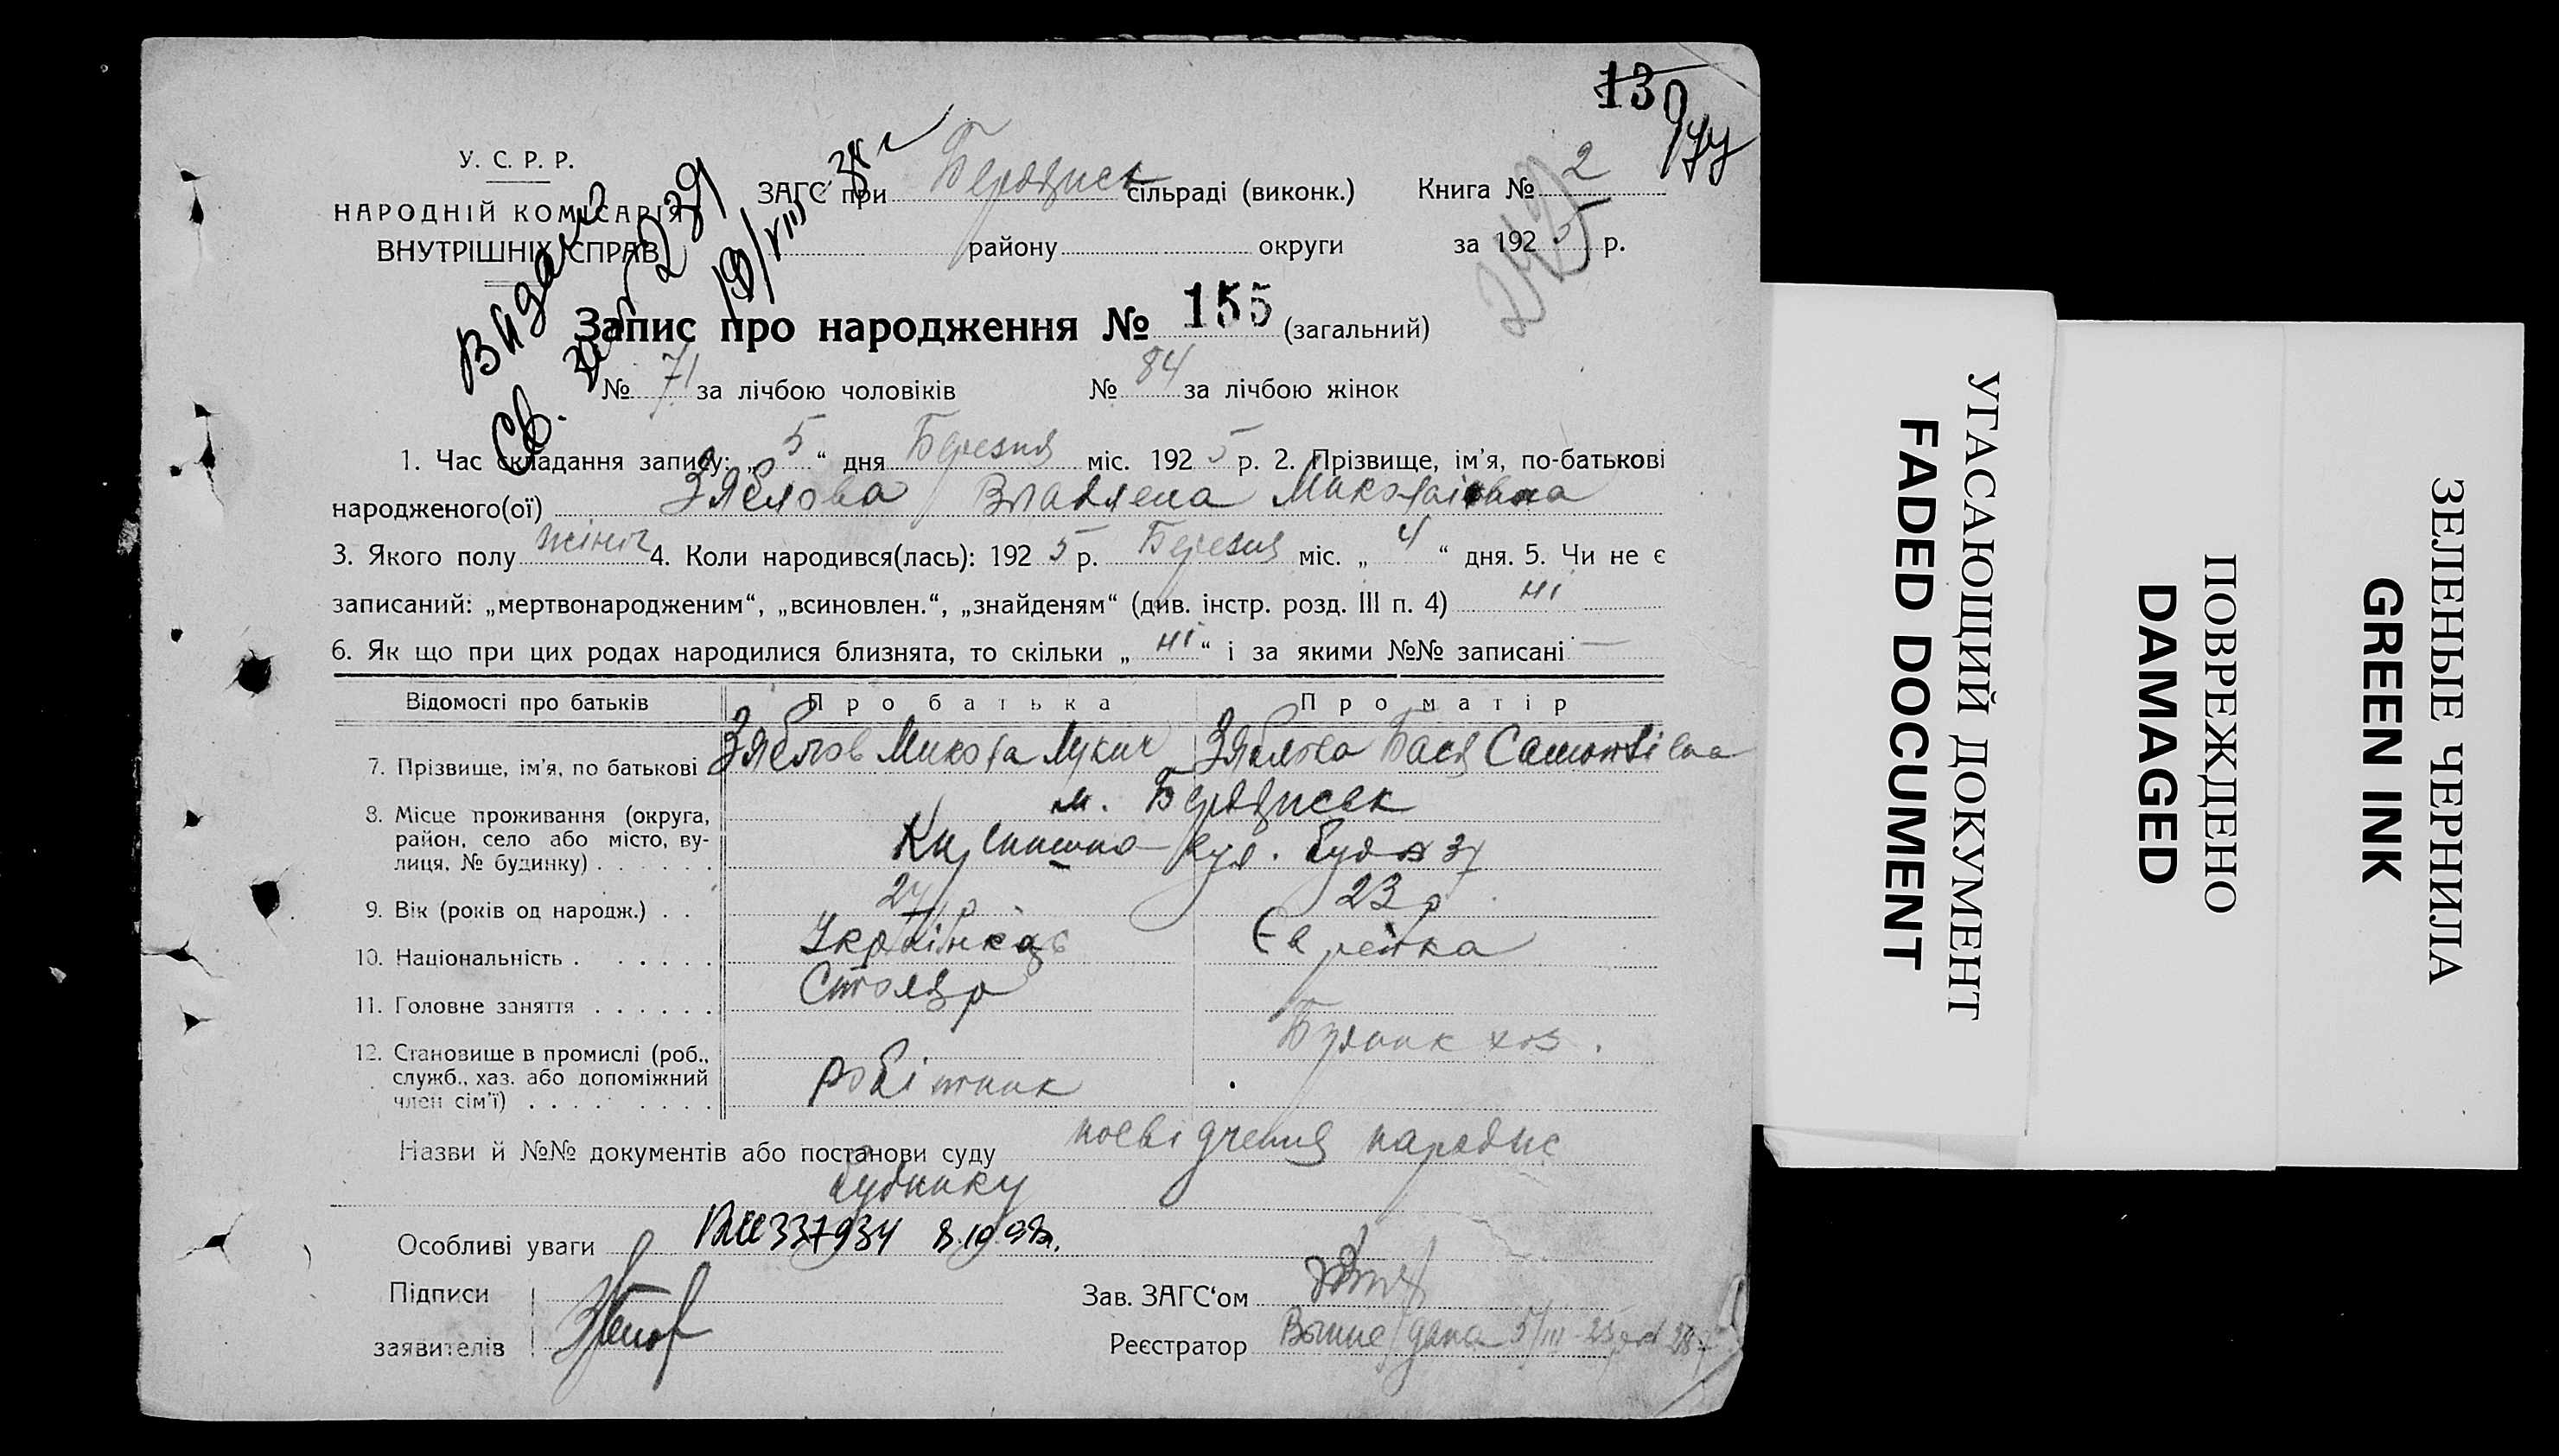 13
У. С. Р. Р.
НАРОДНІЙ КОМІСАРІЯТ
ВНУТРІШНІХ СПРАВ
ЗАГС при сільраді (виконк.)
району округи
Книга № 2
за 1925 р.
242
Видано
Св.
239
19/VIII
Запис про народження № 155 (загальний)
№ 71 за лічбою чоловіків № 84 за лічбою жінок
1. Час складання запису: „ 5 “ дня Березня міс. 1925 р. 2. Прізвище, ім’я, по-батькові
народженого(ої) Зяблова Владлена Миколаівна
3. Якого полу жіноч 4. Коли народився(лась): 1925 р. Березня міс. „ 4 “ дня. 5. Чи не є
записаний: „мертвонародженим“, „всиновлен.“, „знайденям“ (див. інстр. розд. III п. 4) ні
6. Як що при цих родах народилися близнята, то скільки „ ні “ і за якими №№ записані —
Відомості про батьків Про батька Про матір
7. Прізвище, ім’я, по батькові Зяблов Микола Лукич Зяблова Бася Самойлівна
8. Місце проживання (округа,
район, село або місто, ву-
лиця, № будинку) . . . . . .
м.
вул. буд № 37
9. Вік (років од народж.) . . 27 р 23 р
10. Національність . . . . . . Українець Еврейка
11. Головне заняття . . . . . . Столяр
12. Становище в промислі (роб.,
служб., хаз. або допоміжний
член сім’ї) . . . . . . . . .
робітник
хоз.
Назви й №№ документів або постанови суду посвідчення
будинку
Особливі уваги 337934 8.10.98г.
Підписи
заявителів
Зав. ЗАГС‘ом
Реєстратор
УГАСАЮЩИЙ ДОКУМЕНТ
FADED DOCUMENT
ПОВРЕЖДЕНО
DAMAGED
ЗЕЛЕНЫЕ ЧЕРНИЛА
GREEN INK